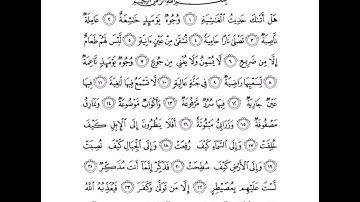 بِسْمِ اللَّهِ الرَّحْمَٰنِ الرَّحِيمِ
هَلْ أَتَىٰكَ حَدِيثُ الْغَٰشِيَةِ ١ وُجُوهٌ يَوْمَئِذٍ خَٰشِعَةٌ ٢ عَامِلَةٌ
نَّاصِبَةٌ ٣ تَصْلَىٰ نَارًا حَامِيَةً ٤ تُسْقَىٰ مِنْ عَيْنٍ ءَانِيَةٍ ٥ لَّيْسَ لَهُمْ طَعَامٌ
إِلَّا مِن ضَرِيعٍ ٦ لَّا يُسْمِنُ وَلَا يُغْنِي مِن جُوعٍ ٧ وُجُوهٌ يَوْمَئِذٍ نَّاعِمَةٌ
٨ لِّسَعْيِهَا رَاضِيَةٌ ٩ فِي جَنَّةٍ عَالِيَةٍ ١٠ لَّا تَسْمَعُ فِيهَا لَٰغِيَةً ١١ فِيهَا
عَيْنٌ جَارِيَةٌ ١٢ فِيهَا سُرُرٌ مَّرْفُوعَةٌ ١٣ وَأَكْوَابٌ مَّوْضُوعَةٌ ١٤ وَنَمَارِقُ
مَصْفُوفَةٌ ١٥ وَزَرَابِيُّ مَبْثُوثَةٌ ١٦ أَفَلَا يَنظُرُونَ إِلَى الْإِبِلِ كَيْفَ
خُلِقَتْ ١٧ وَإِلَى السَّمَاءِ كَيْفَ رُفِعَتْ ١٨ وَإِلَى الْجِبَالِ كَيْفَ نُصِبَتْ
١٩ وَإِلَى الْأَرْضِ كَيْفَ سُطِحَتْ ٢٠ فَذَكِّرْ إِنَّمَا أَنتَ مُذَكِّرٌ ٢١
لَّسْتَ عَلَيْهِم بِمُصَيْطِرٍ ٢٢ إِلَّا مَن تَوَلَّىٰ وَكَفَرَ ٢٣ فَيُعَذِّبُهُ اللَّهُ